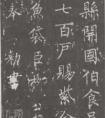 縣開國伯食邑
七百戶賜紫金
魚袋臣柳公權
奉勅書